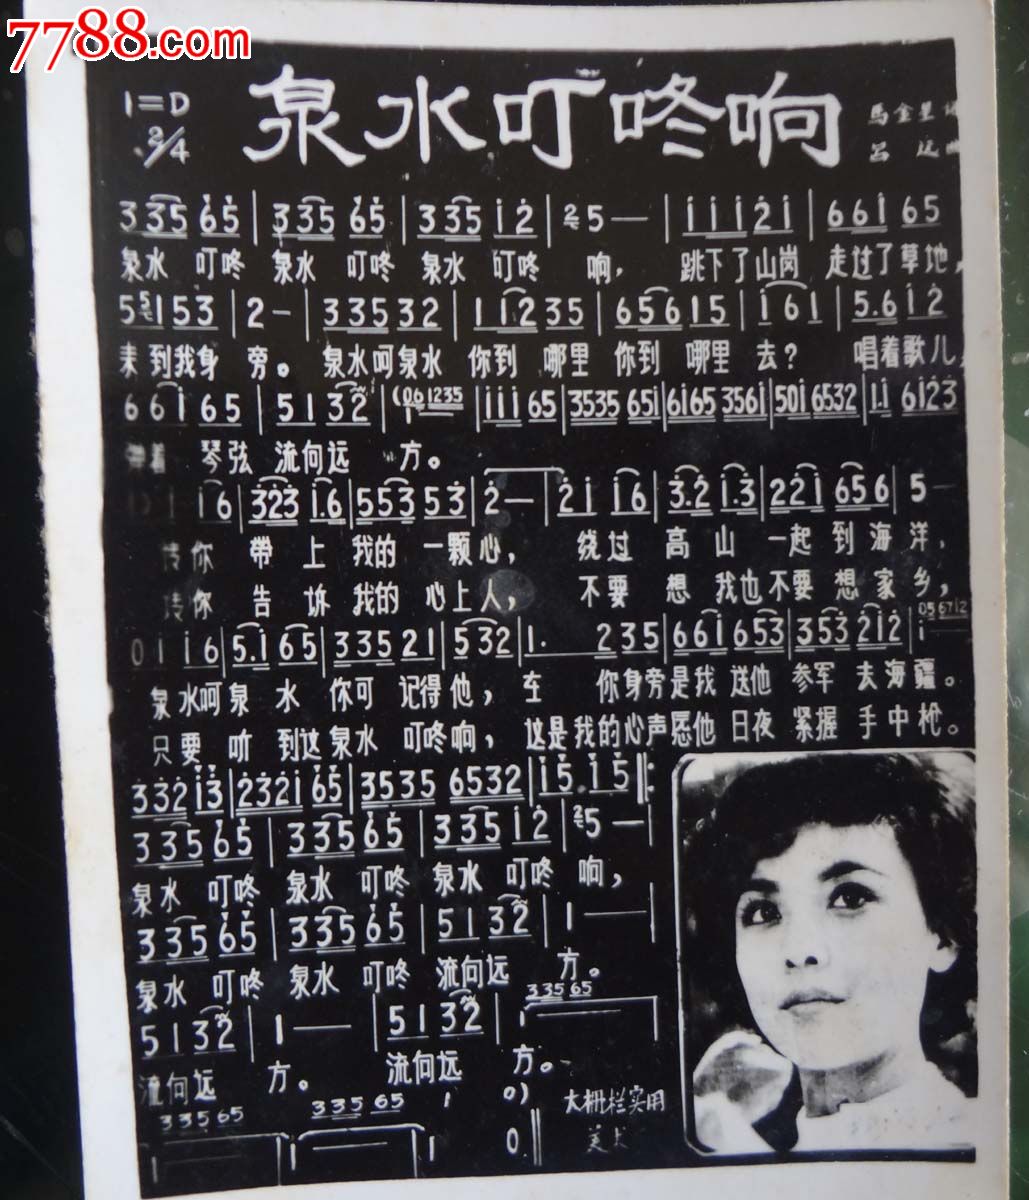 7788.com
1=D
2/4
泉水叮咚响
馬金星
呂远
3 3 5 6 5 | 3 3 5 6 5 | 3 3 5 i 2 | 5 — | i i i 2 i | 6 6 i 6 5
泉水 叮咚 泉水 叮咚 泉水 叮咚 响， 跳下了山岗 走过了草地，
5 1 5 3 | 2 — | 3 3 5 3 2 | 1 1 2 3 5 | 6 5 6 1 5 | i 6 i | 5. 6 i 2
来到我身 旁。 泉水呵泉水 你到 哪里 你到 哪里 去？ 唱着歌儿，
6 6 i 6 5 | 5 1 3 2 | (061235 | i i i 6 5 | 3535 65i | 6i65 356i | 50i 6532 | i.i 6i23
弹着 琴弦 流向远 方。
i 6 | 3 2 3 i. 6 | 5 5 3 5 3 | 2 — | 2 i i 6 | 3. 2 i. 3 | 2 2 i 6 5 6 | 5 —
你 带 上 我的 一颗心， 绕过 高山 一起 到 海洋，
你 告 诉 我的 心上人， 不要 想 我也不要 想家 乡，
0 1 i 6 | 5. i 6 5 | 3 3 5 2 1 | 5 3 2 | 1. 2 3 5 | 6 6 i 6 5 3 | 3 5 3 2 i 2 | i 056712
泉水呵泉 水 你可 记得他， 在 你身旁是我 送他 参军 去海疆。
只要 听 到这泉水 叮咚响， 这是我的心声愿他 日夜 紧握 手中枪。
3 3 2 i 3 | 2 3 2 i 6 5 | 3 5 3 5 6 5 3 2 | i 5. i 5 :
3 3 5 6 5 | 3 3 5 6 5 | 3 3 5 i 2 | 5 — |
泉水 叮咚 泉水 叮咚 泉水 叮咚 响，
3 3 5 6 5 | 3 3 5 6 5 | 5 1 3 2 | 1 —
泉水 叮咚 泉水 叮咚 流向远 方。
33565
5 1 3 2 | 1 — | 5 1 3 2 | 1
流向远 方。 流向远 方。
33565 33565 i 0)
1 | 1 | | 0
大栅栏实用
美